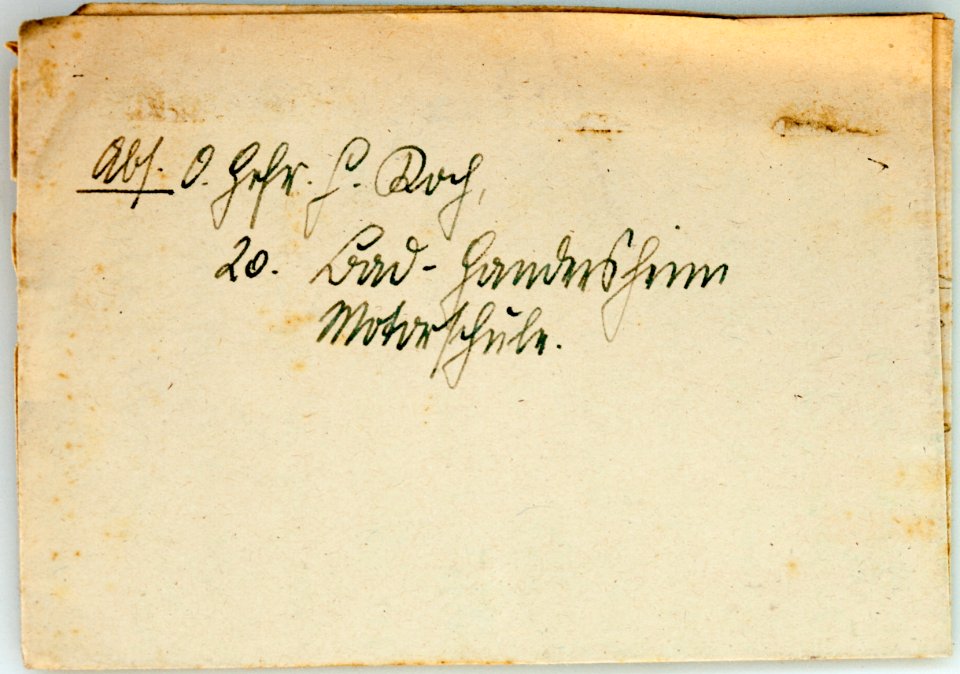 Abs. O. Gefr. H. Koch,
20. Bad-Gandersheim
Motorschule.